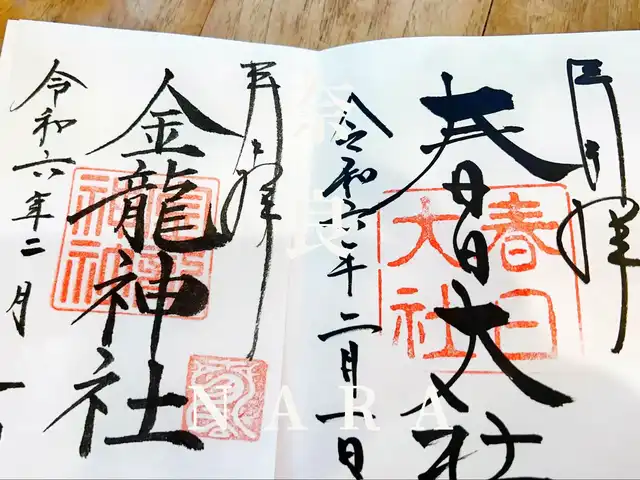 奉拝
春日大社
春日
大社
令和六年二月一日
奉拝
金龍神社
令和六年二月一
奈良
NARA